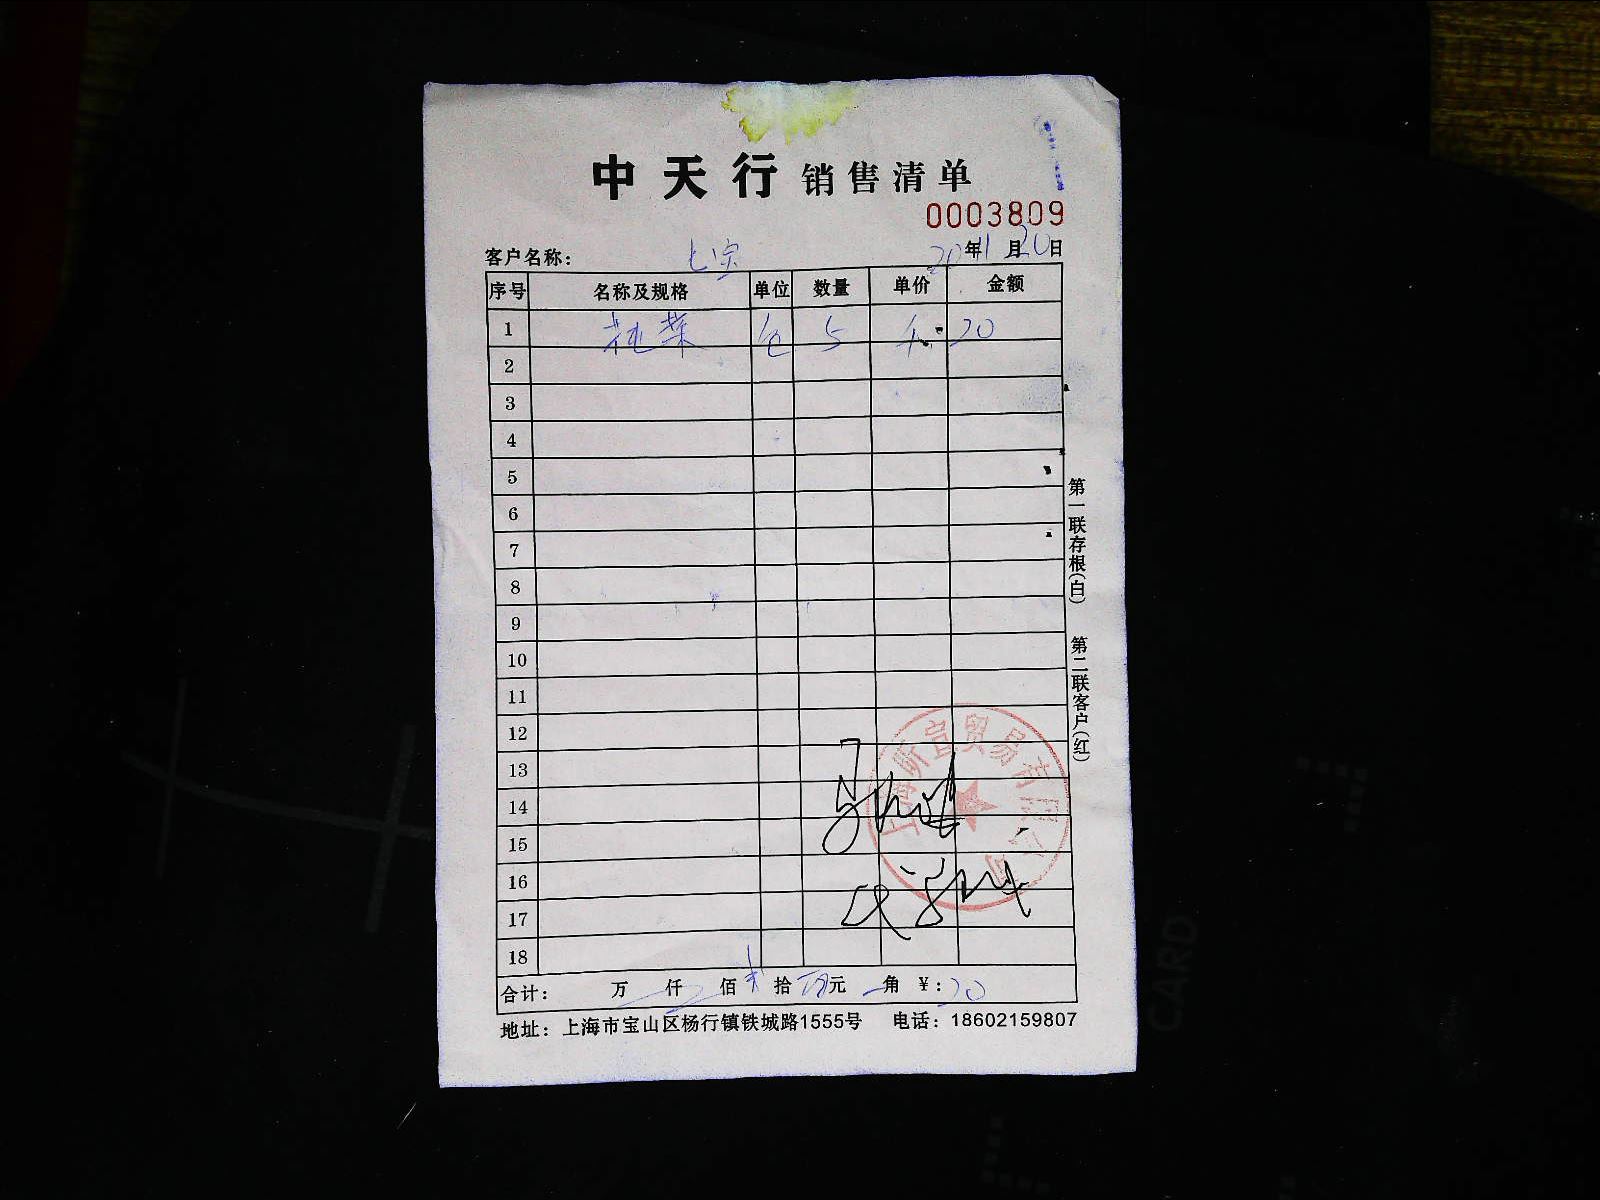 中天行 销售清单
0003809
客户名称： 七宝 20年11月20日
序号 名称及规格 单位 数量 单价 金额
1 桃浆 包 5 4. 20
2
3
4
5
6
7
8
9
10
11
12
13
14
15
16
17
18
合计： 万 仟 佰 贰拾 元 角 ¥：20
地址：上海市宝山区杨行镇铁城路1555号 电话：18602159807
第一联存根(白) 第二联客户(红)
上海昕宜贸易有限公司
CARD